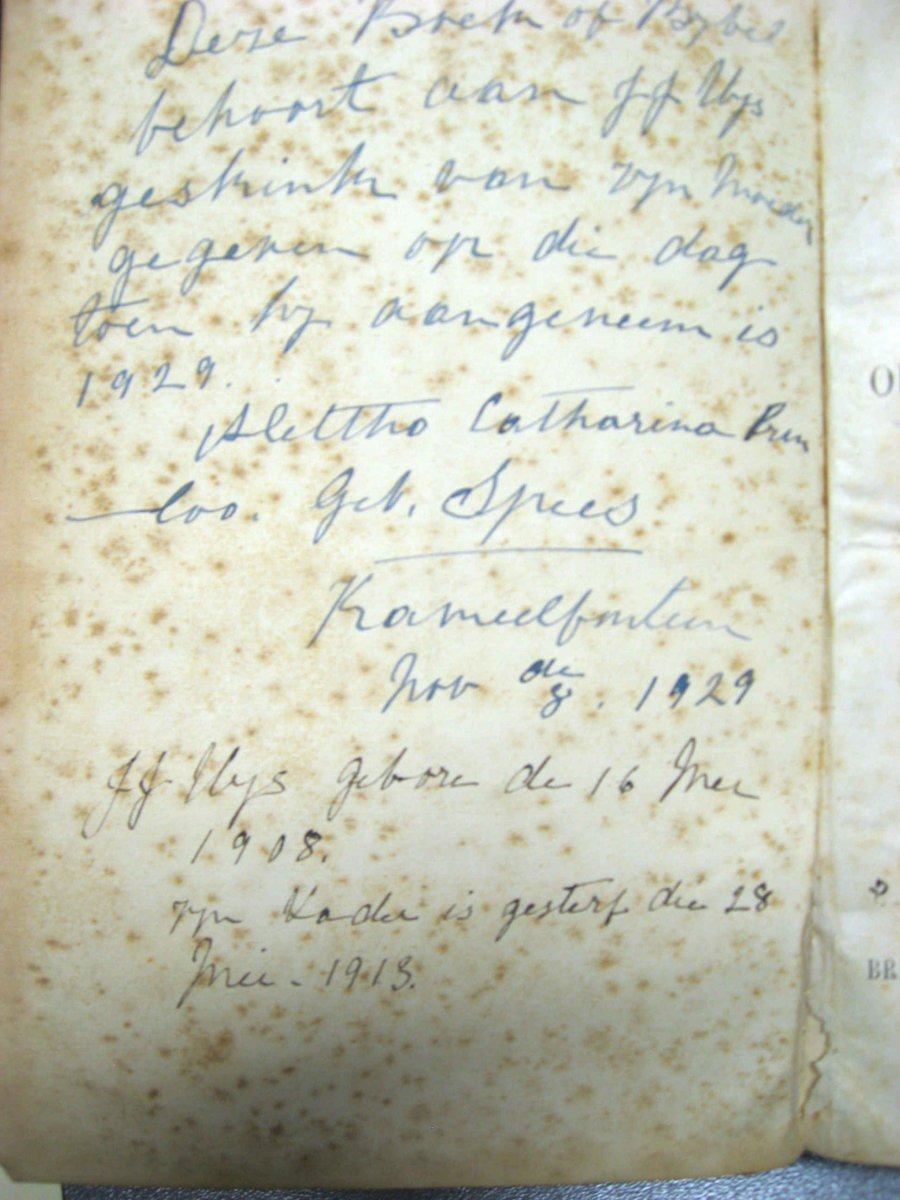 Deze Boek of Bybel
behoort aan J J Uys
geskink van zyn Moeder
gegeven op die dag
toen hy aangeneem is
1929.
Alettha Catharina Prin
—loo. Geb, Spies
Kameelfontein
Nov de 8. 1929
J J Uys gebore de 16 Mei
1908.
zyn Vader is gesterf die 28
Mei - 1913.
O
BR